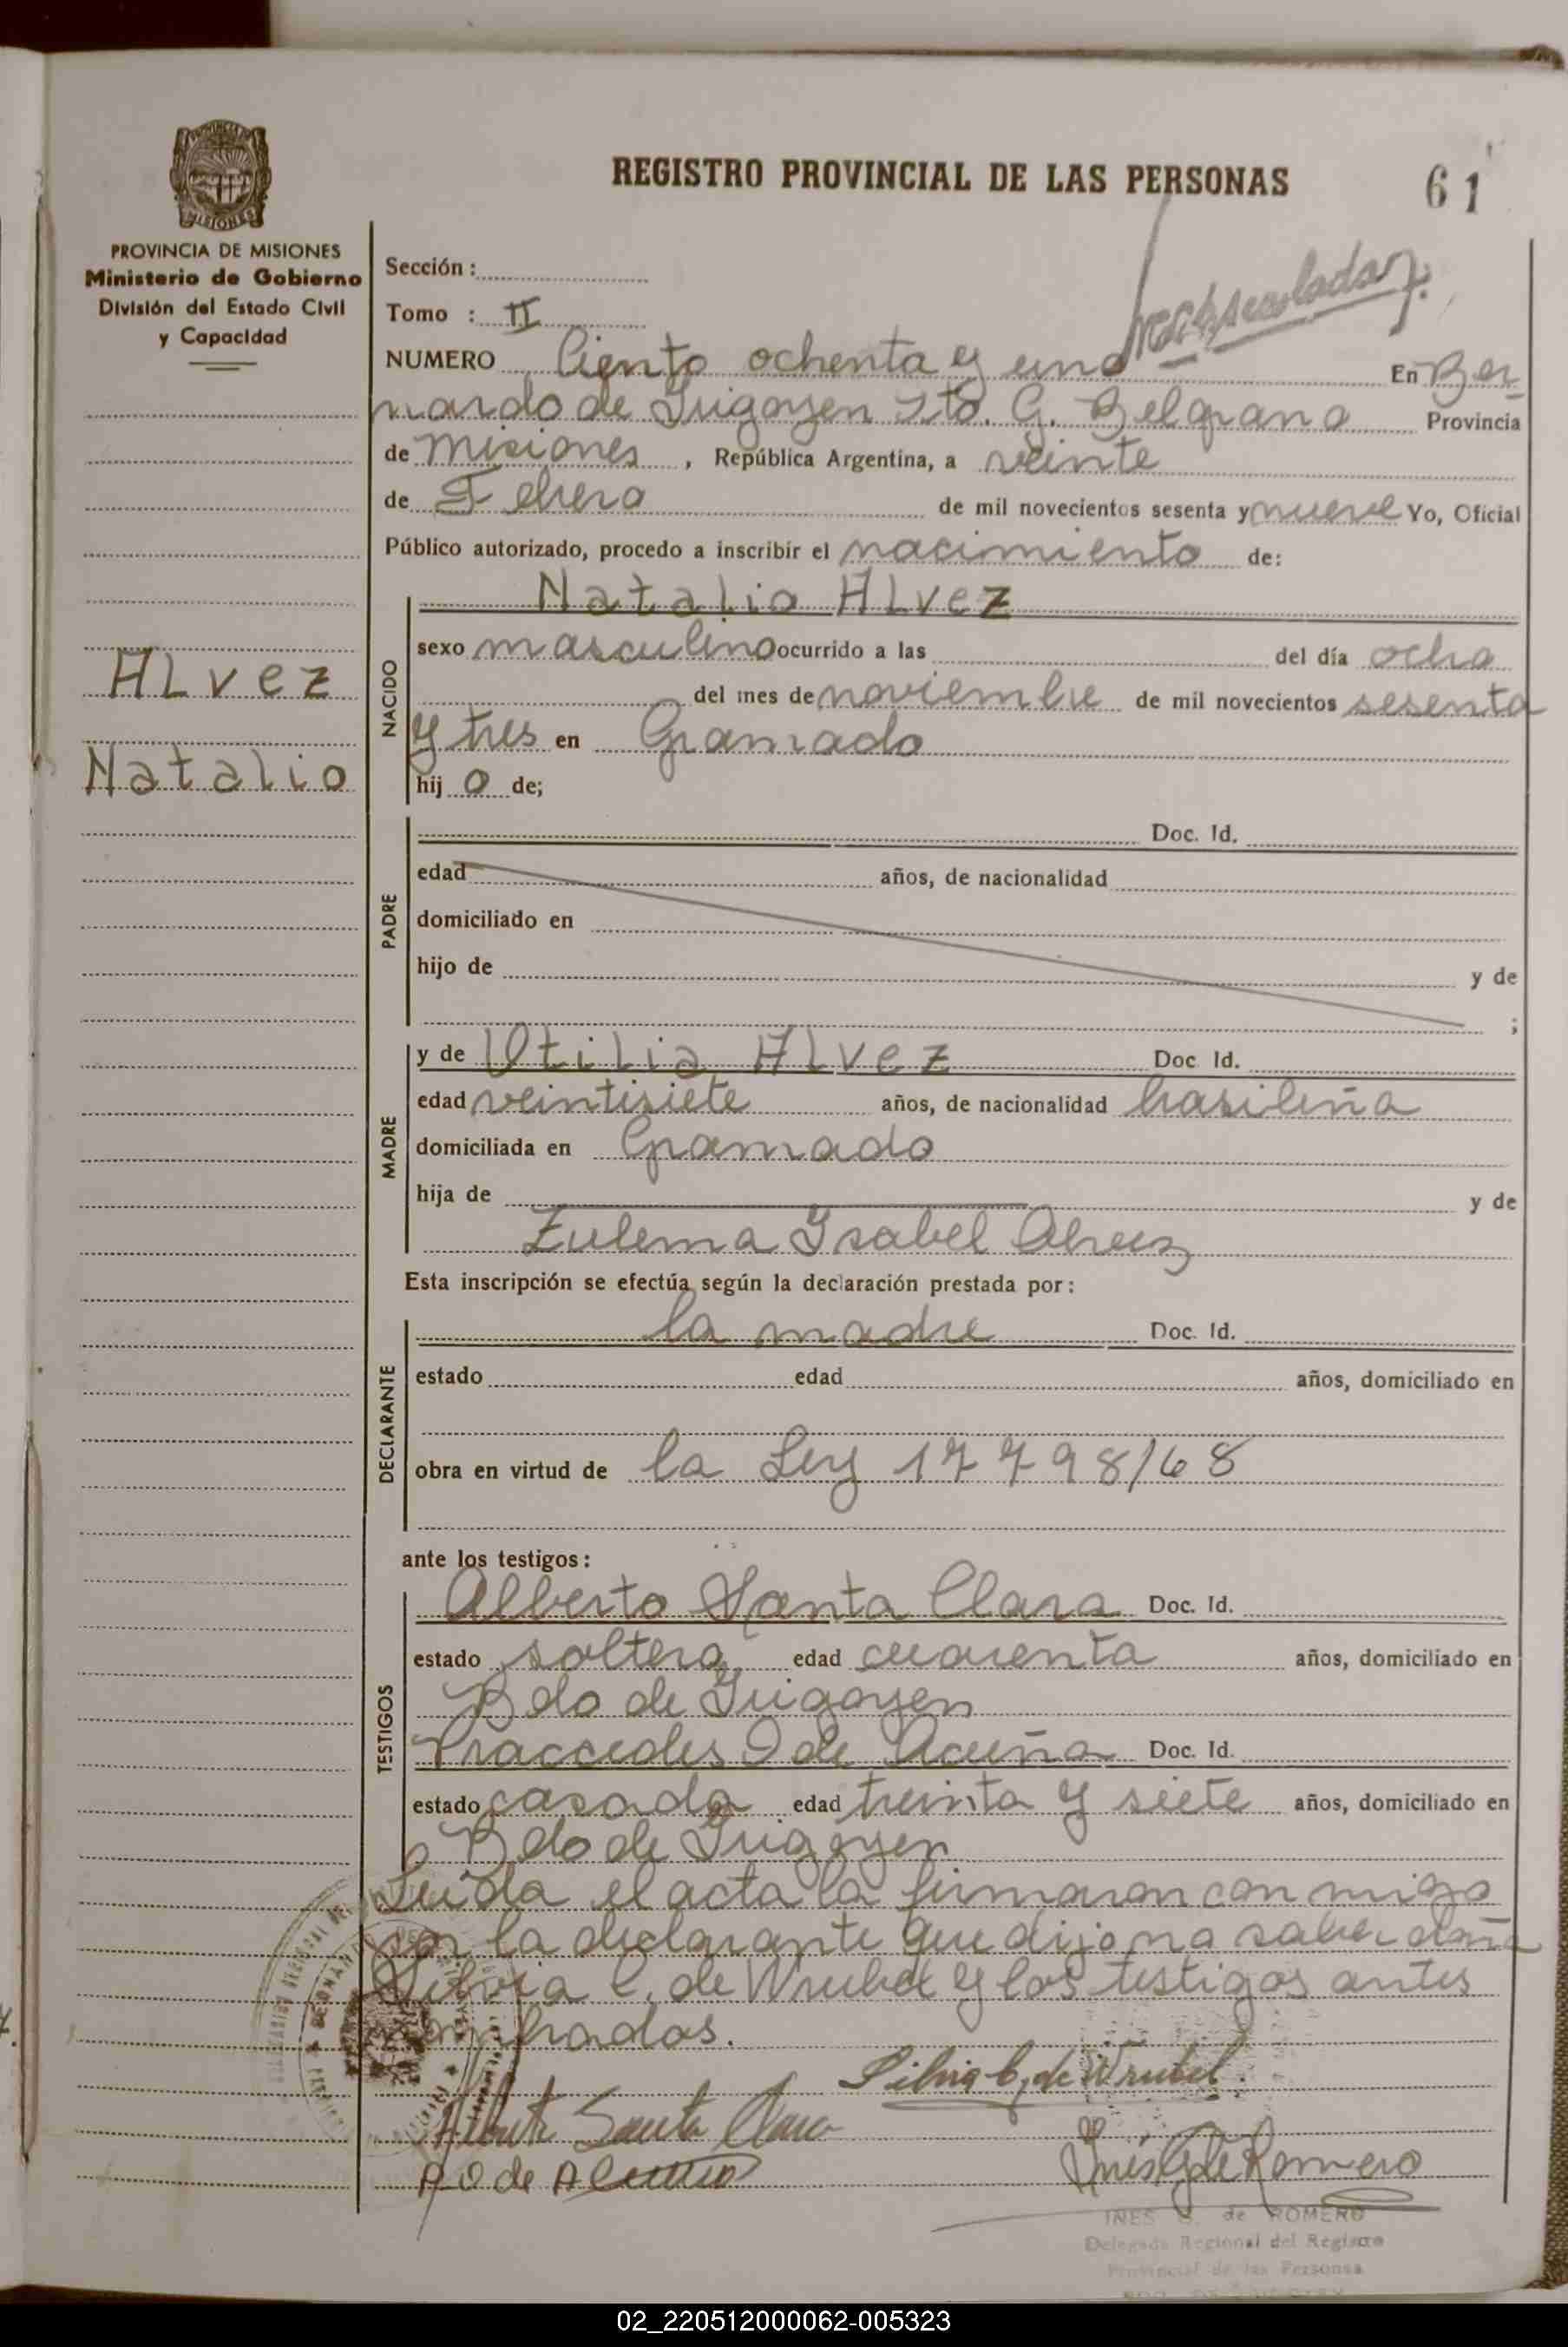 REGISTRO PROVINCIAL DE LAS PERSONAS
61
MISIONES
PROVINCIA DE MISIONES
Ministerio de Gobierno
División del Estado Civil
y Capacidad
Sección :
Tomo : II
NUMERO Ciento ochenta y uno En Ber
nardo de Irigoyen Dto. G. Belgrano Provincia
de Misiones, República Argentina, a veinte
de Febrero de mil novecientos sesenta y nueve Yo, Oficial
Público autorizado, procedo a inscribir el nacimiento de:
Natalio ALvez
ALvez
Natalio
NACIDO
sexo masculino ocurrido a las del día ocho
del mes de noviembre de mil novecientos sesenta
y tres en Gramado
hij o de;
PADRE
Doc. Id.
edad años, de nacionalidad
domiciliado en
hijo de y de
;
MADRE
y de Otilia ALvez Doc. Id.
edad veintisiete años, de nacionalidad brasileña
domiciliada en Gramado
hija de y de
Zulema Ysabel Alvez
Esta inscripción se efectúa según la declaración prestada por:
DECLARANTE
la madre Doc. Id.
estado edad años, domiciliado en
obra en virtud de la Ley 17798/68
ante los testigos:
TESTIGOS
Alberto Santa Clara Doc. Id.
estado soltero edad cuarenta años, domiciliado en
Bdo de Irigoyen
Praccedes O de Acuña Doc. Id.
estado casada edad treinta y siete años, domiciliado en
Bdo de Irigoyen
Leida el acta la firmaron con migo
por la declarante que dijo no saber doña
Silvia C. de Wrubel y los testigos antes
nombrados.
Silvia C. de Wrubel.
Alberto Santa Clara
P.O de Acuña
Inés G de Romero
INES G. de ROMERO
Delegada Regional del Registro
Provincial de las Personas
02_220512000062-005323